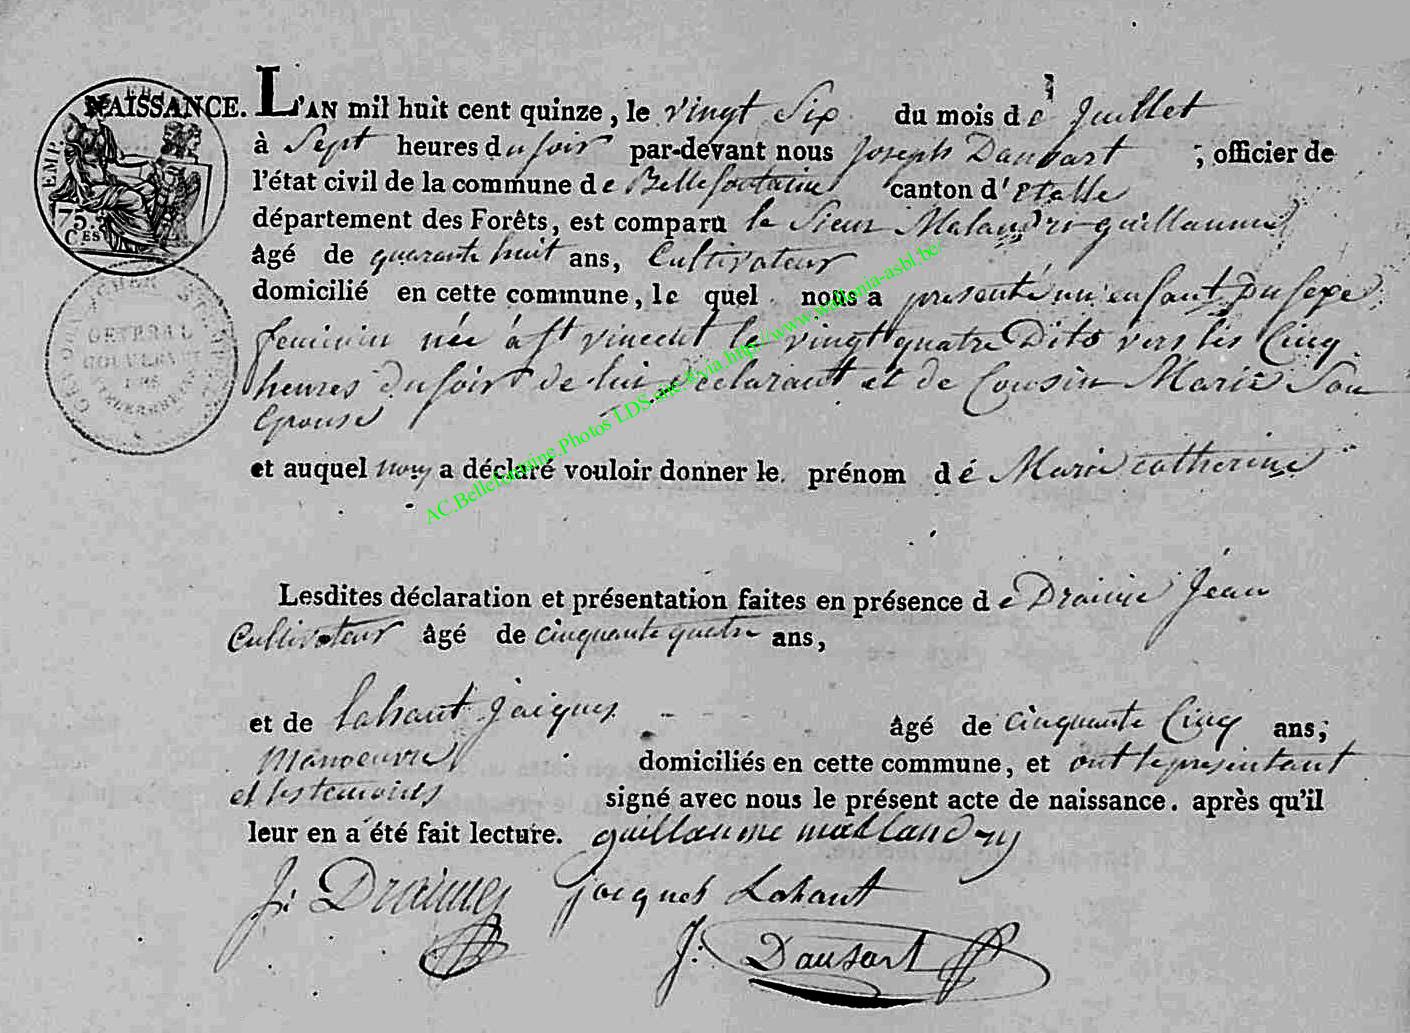 NAISSANCE. L'AN mil huit cent quinze, le vingt Six du mois de Juillet
à Sept heures du soir par-devant nous Joseph Dausart ; officier de
l'état civil de la commune de Bellefontaine canton d'Etalle
département des Forêts, est comparu le Sieur Malandri guillaume
âgé de quarante huit ans, Cultivateur
domicilié en cette commune, le quel nous a présenté un enfant Du sexe
feminin née à St vincent le vingt quatre Dito vers les Cinq
heures du soir de lui déclarant et de Cousin Marie Son
Epouse
et auquel nous a déclaré vouloir donner le prénom dé Marie catherine
Lesdites déclaration et présentation faites en présence de Draime Jean
Cultivateur âgé de cinquante quatre ans,
et de Lahaut Jacques âgé de cinquante Cinq ans;
Manoeuvre domiciliés en cette commune, et ont le présentant
et les temoins signé avec nous le présent acte de naissance. après qu'il
leur en a été fait lecture. guillaume mallandry
J: Draime jacques Lahaut
J: Dausart
EMP.
75.
CES
GENERAL
GOUVERNT
AC.Bellefontaine.Photos LDS via http://www.wallonia-asbl.be/